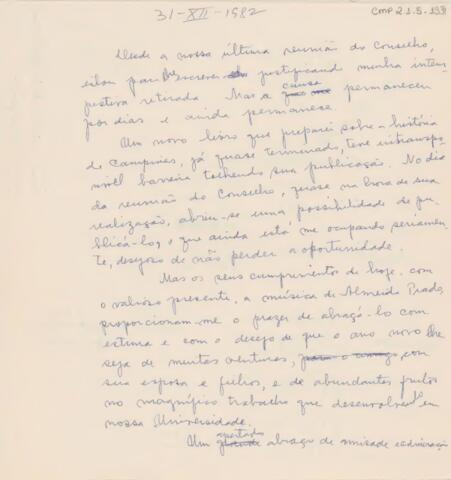 31-XII-1982
CMP 2.1.5-
Desde a nossa última reunião do Conselho,
estou para lhe escrever justificando minha intem-
pestiva retirada. Mas a causa permaneceu
por dias e ainda permanece.
Um novo livro que preparei sobre história
de Campinas, já quase terminado, teve intranspo-
nível barreira tolhendo sua publicação. No dia
da reunião do Conselho, quase na hora de sua
realização, abriu-se uma possibilidade de pu-
blicá-lo, o que ainda está me ocupando seriamen-
te, desejoso de não perder a oportunidade.
Mas os seus cumprimentos de hoje, com
o valioso presente, a música de Almeida Prado,
proporcionam-me o prazer de abraçá-lo com
estima e com o desejo de que o ano novo lhe
seja de muitas venturas, com
sua esposa e filhos, e de abundantes frutos
no magnífico trabalho que desenvolve em
nossa Universidade.
Um apertado abraço de amizade e admiração